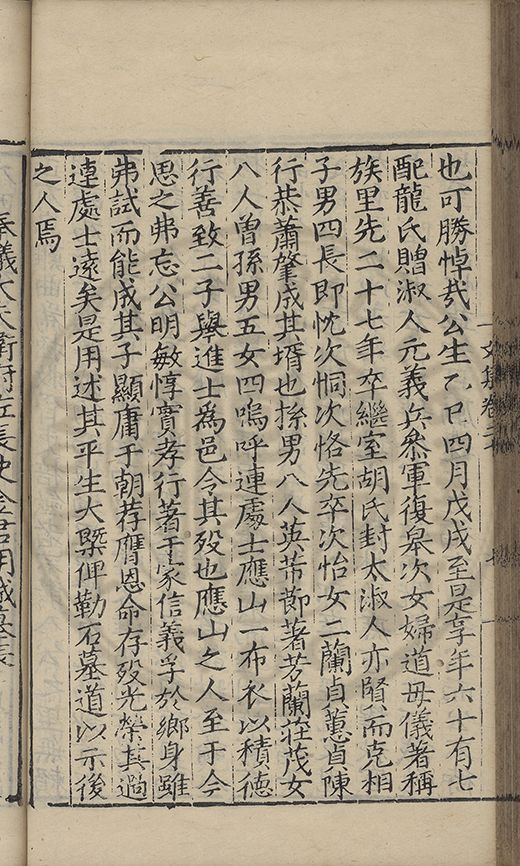 也可勝悼哉公生乙巳四月戊戌至是享年六十有七
配龍氏贈淑人元義兵叅軍復皐次女婦道母儀著稱
族里先二十七年卒繼室胡氏封太淑人亦賢而克相
子男四長即忱次恫次恪先卒次怡女二蘭貞蕙貞陳
行恭蕭肇成其壻也孫男八人英芾莭著芳蘭莊茂女
八人曾孫男五女四嗚呼連處士應山一布衣以積德
行善致二子舉進士爲邑令其殁也應山之人至于今
思之弗忘公明敏惇實孝行著于家信義孚於鄉身雖
弗試而能成其子顯庸于朝荐膺恩命存殁光榮其過
連處士遠矣是用述其平生大槩俾勒石墓道以示後
之人焉